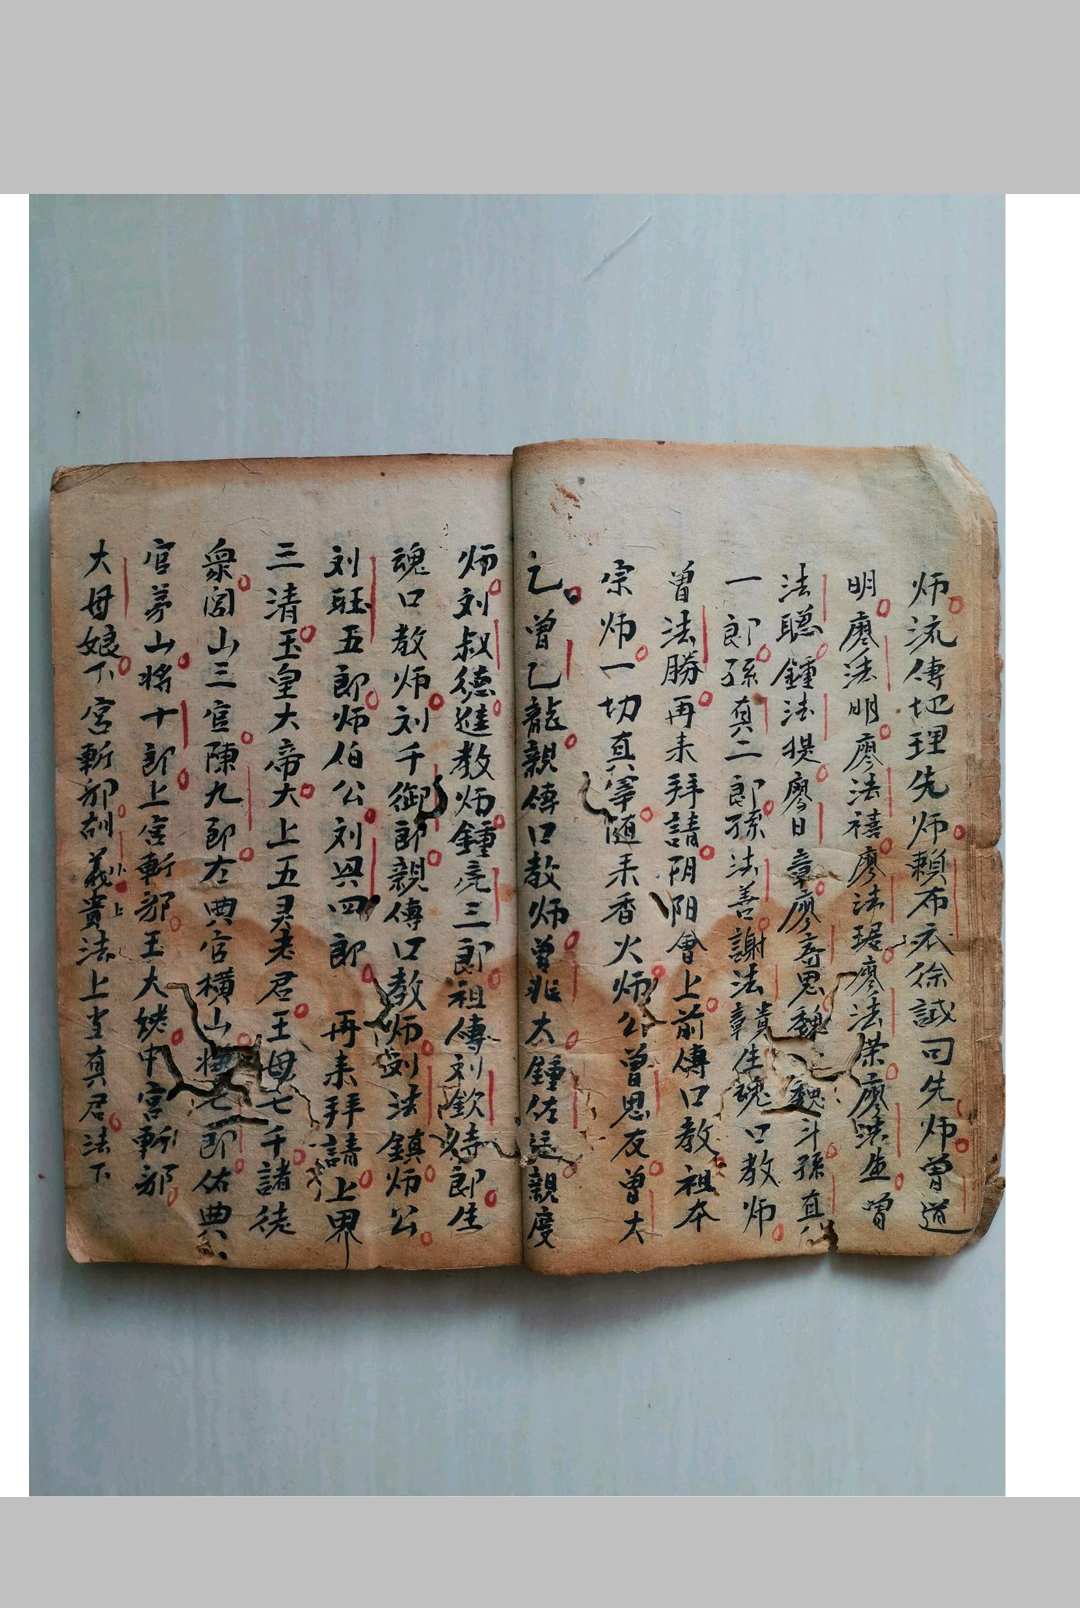 师流傳地理先师賴布衣徐誠司先师曾道
明廖法明廖法禧廖法琚廖法荣廖法生曾
法聰鍾法提廖日章廖 思魏 魏斗孫真
一郎孫真二郎孫法善謝法章貴生魂口教师
曾法勝再未拜請阴阳會上前傳口教祖本
宗师一切真宰随未香火师公曾思友曾大
乙曾乙龍親傳口教师曾兆太鍾佐廷親度
师刘叔德進教师鍾亮三郎祖傳刘欽 郎生
魂口教师刘千御郎親傳口教师刘法鎮师公
刘 五郎师伯公刘興四郎 再未拜請上界
三清玉皇大帝大上五灵老君王母七千諸徒
衆闾山三官陳九郎左典官橫山 七郎佑典
官茅山將十郎上宮斬邪王大姥中宮斬邪
大母娘下宮斬邪 義貴法上 真君法下
小
上